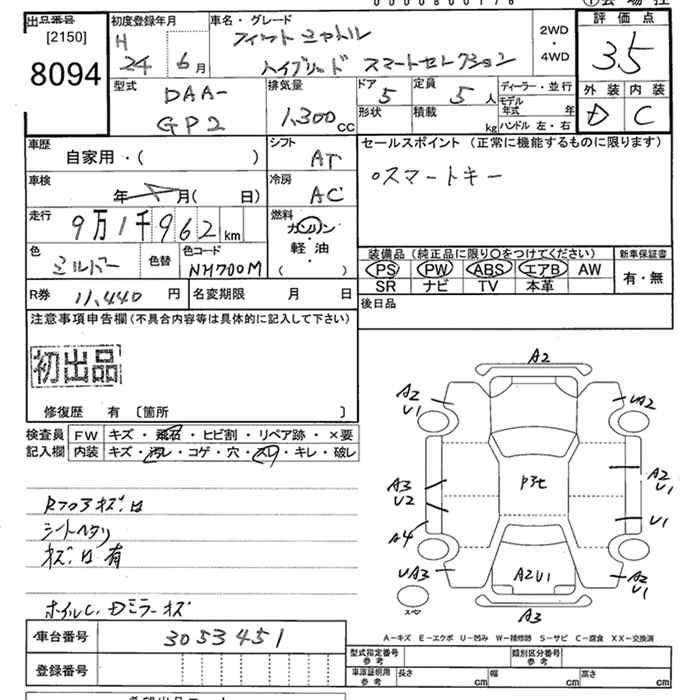 出品番号
[2150]
8094
初度登録年月
H 24 6月
車名・グレード
フィット シャトル
ハイブリッド スマートセレクション
2WD
・
4WD
評価点
3.5
外装 内装
D C
型式
DAA-
GP2
排気量
1,300 CC
ドア
5
形状
定員
5人
積載
kg
ディーラー・並行
モデル年式 年
ハンドル 左・右
車歴
自家用・( )
シフト
AT
セールスポイント (正常に機能するものに限ります)
○スマートキー
車検
年 月( 日)
冷房
AC
走行
9万1千962 km
燃料
ガソリン
・
軽油
・
( )
色
シルバー
色替
色コード
NH700M
装備品 (純正品に限り○をつけてください)
PS PW ABS エアB AW
SR ナビ TV 本革
新車保証書
有・無
R券 11,440 円
名変期限 月 日
後日品
注意事項申告欄 (不具合内容等は具体的に記入して下さい)
初出品
修復歴 有 〔箇所 〕
検査員
記入欄
FW キズ・飛石・ヒビ割・リペア跡・×要
内装 キズ・汚レ・コゲ・穴・スレ・キレ・破レ
シートヘタリ
キズ 有
ホイルC, Dミラーキズ
A2
A2
U1
UA2
A3
U2
A2
U1
U1
A4
UA3
A2U1
A2
U1
スペア
A3
A-キズ E-エクボ U-凹み W-補修跡 S-サビ C-腐食 XX-交換済
車台番号
3053451
登録番号
型式指定番号
参考
類別区分番号
参考
車庫証明用
参考
長さ cm 幅 cm 高さ cm